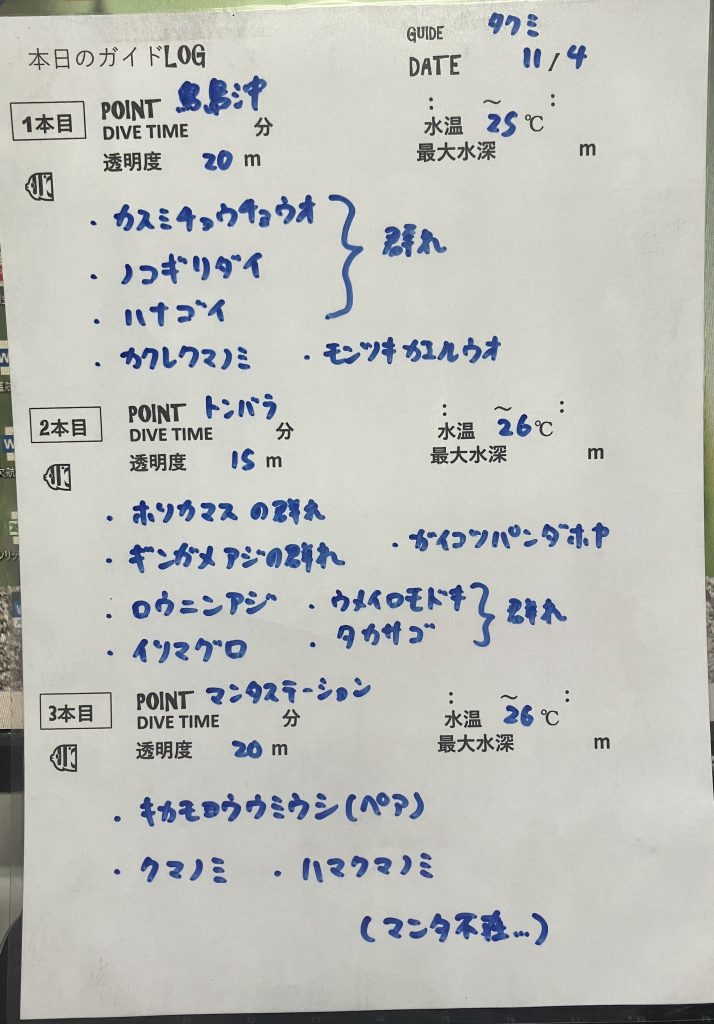 本日のガイドLOG
GUIDE タクミ
DATE 11/4
1本目 POINT 鳥島沖 : ～ :
DIVE TIME 分 水温 25℃
透明度 20 m 最大水深 m
・カスミチョウチョウオ
・ノコギリダイ 群れ
・ハナゴイ
・カクレクマノミ ・モンツキカエルウオ
2本目 POINT トンバラ : ～ :
DIVE TIME 分 水温 26℃
透明度 15 m 最大水深 m
・ホソカマスの群れ
・ギンガメアジの群れ ・ガイコツパンダホヤ
・ロウニンアジ ・ウメイロモドキ 群れ
・イソマグロ ・タカサゴ
3本目 POINT マンタステーション : ～ :
DIVE TIME 分 水温 26℃
透明度 20 m 最大水深 m
・キカモヨウウミウシ(ペア)
・クマノミ ・ハマクマノミ
(マンタ不在…)